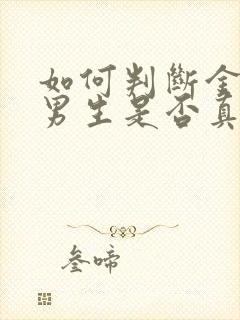 如何判断金
男生是否真
叁啼